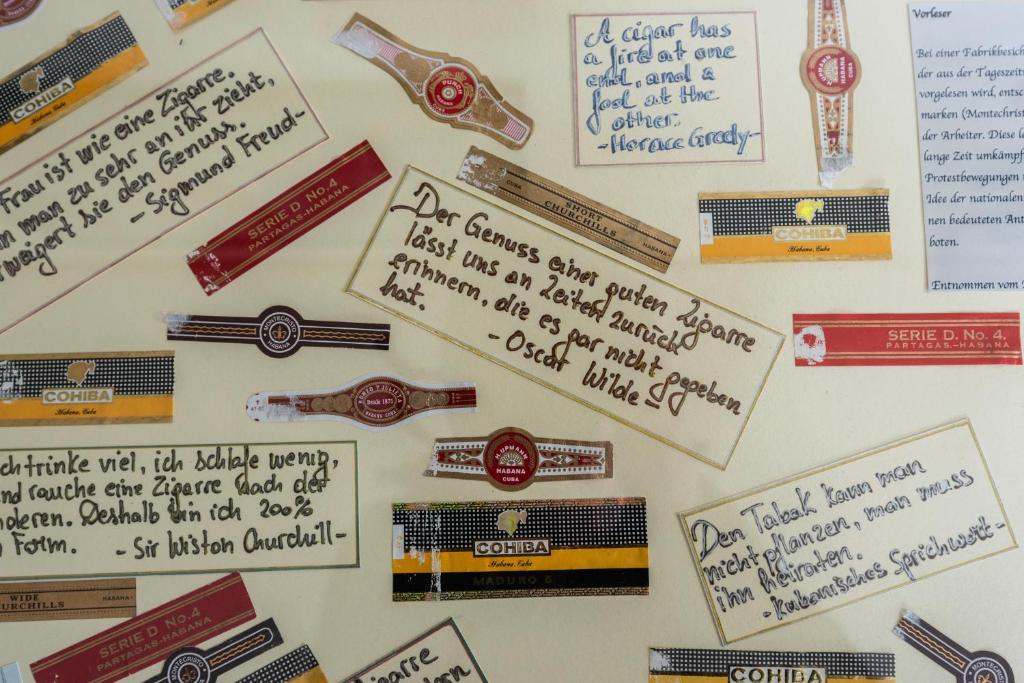 COHIBA
Habana, Cuba
Frau ist wie eine Zigarre.
man zu sehr an ihr zieht,
weigert sie den Genuss.
- Sigmund Freud -
PUNCH
HABANA
A cigar has
a fire at one
end, and a
fool at the
other.
- Horace Greely -
H. UPMANN
HABANA
CUBA
Vorleser
Bei einer Fabrikbesich
der aus der Tageszeit
vorgelesen wird, entsc
marken (Montechrist
der Arbeiter. Diese l
lange Zeit umkämpf
Protestbewegungen
Idee der nationalen
nen bedeuteten Ant
boten.
Entnommen vom
SERIE D No.4
PARTAGAS-HABANA
CUBA
SHORT
CHURCHILLS
HABANA
COHIBA
Habana, Cuba
Der Genuss einer guten Zigarre
lässt uns an Zeiten zurück
erinnern, die es gar nicht gegeben
hat.
- Oscar Wilde -
MONTECRISTO
HABANA
SERIE D No. 4.
PARTAGAS-HABANA
COHIBA
Habana, Cuba
ROMEO Y JULIETA
Desde 1875
HABANA CUBA
H. UPMANN
HABANA
CUBA
ch trinke viel, ich schlafe wenig,
nd rauche eine Zigarre nach der
nderen. Deshalb bin ich 200%
n Form. - Sir Wiston Churchill -
COHIBA
Habana, Cuba
MADURO 5
Den Tabak kann man
nicht pflanzen, man muss
ihn heiraten.
- Kubanisches Sprichwort -
WIDE
URCHILLS
HABANA
SERIE D No.4
PARTAGAS-HABANA
MONTECRISTO
igarre
dern
COHIBA